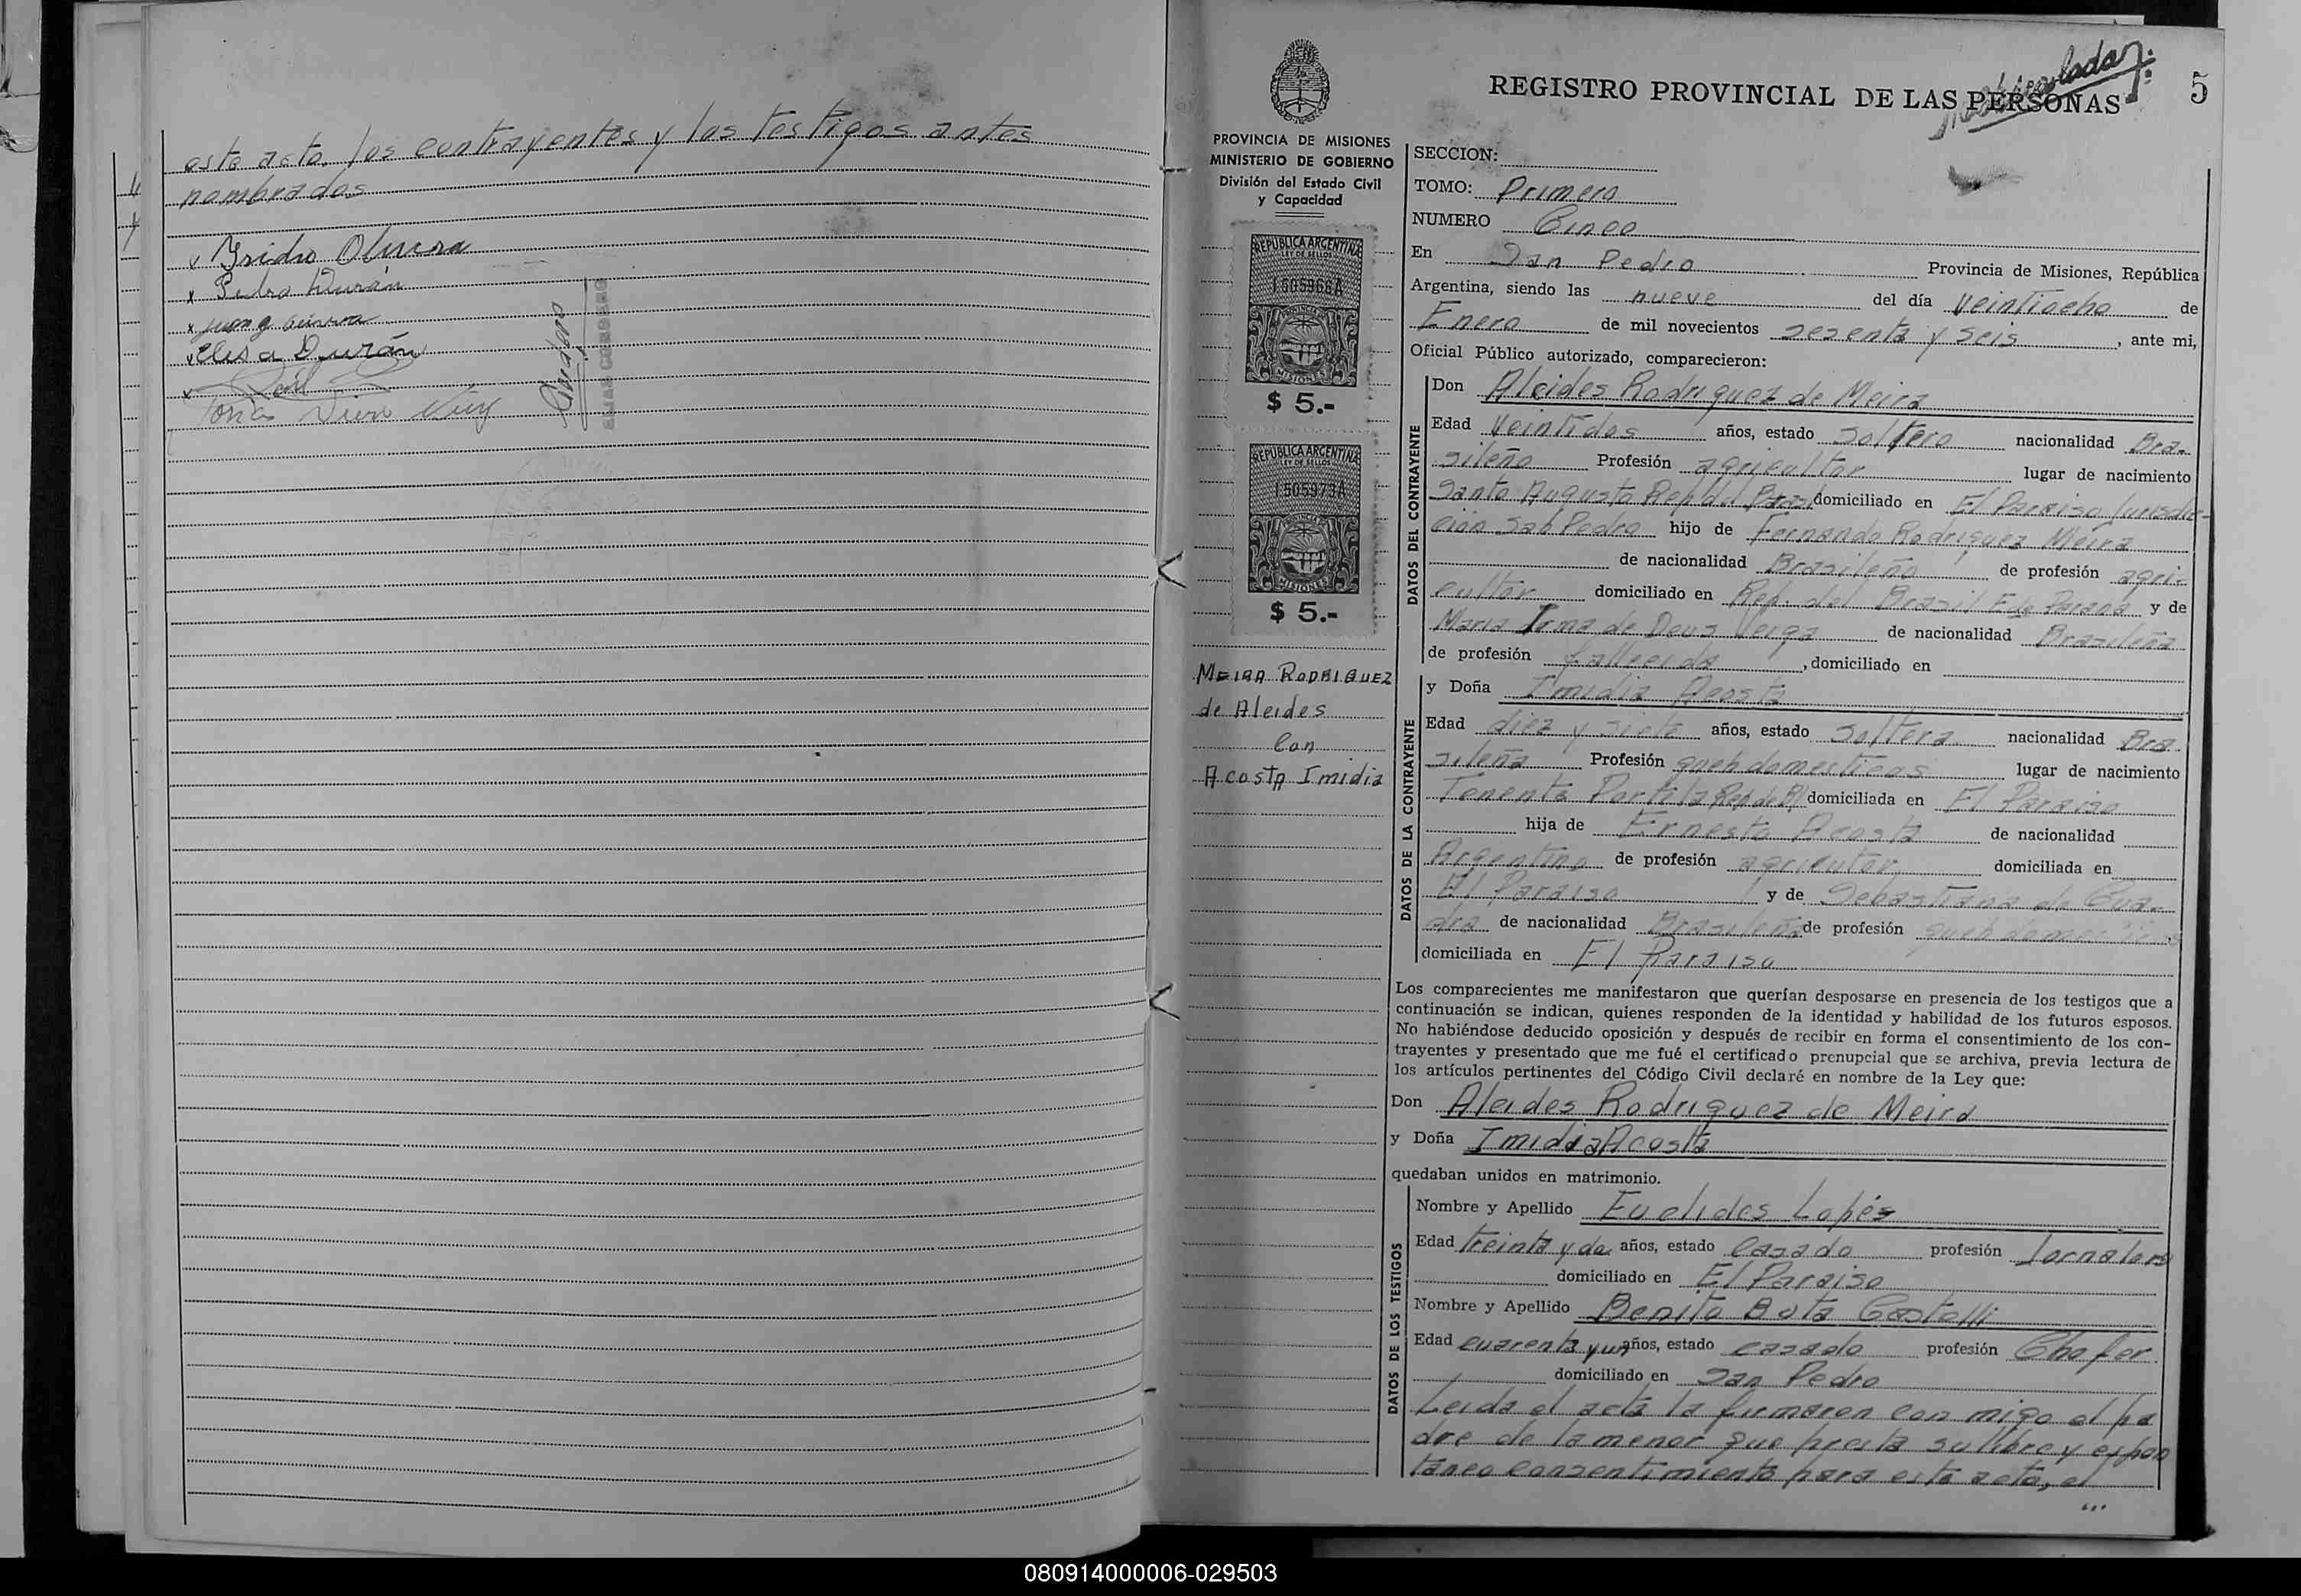 este acto, los contrayentes y los testigos antes
nombrados
x Ysidro Olivera
x Pedro Durán
x
x Elisa Durán
x
ELIAS
REGISTRO PROVINCIAL DE LAS PERSONAS
5
PROVINCIA DE MISIONES
MINISTERIO DE GOBIERNO
División del Estado Civil
y Capacidad
REPUBLICA ARGENTINA
LEY DE SELLOS
1505966A
PROVINCIA DE
MISIONES
$ 5.-
REPUBLICA ARGENTINA
LEY DE SELLOS
1505973A
PROVINCIA DE
MISIONES
$ 5.-
MEIRA RODRIGUEZ
de Alcides
Con
Acosta Imidia
SECCION:
TOMO: Primero
NUMERO Cinco
En San Pedro Provincia de Misiones, República
Argentina, siendo las nueve del día Veintiocho de
Enero de mil novecientos sesenta y seis, ante mi,
Oficial Público autorizado, comparecieron:
DATOS DEL CONTRAYENTE
Don Alcides Rodriguez de Meira
Edad Veintidos años, estado soltero nacionalidad Bra-
sileño Profesión agricultor lugar de nacimiento
Santo Augusto Rep del Brasil domiciliado en El Paraiso Jurisdic-
ción San Pedro hijo de Fernando Rodriguez Meira
de nacionalidad Brasileño de profesión agri-
cultor domiciliado en Rep. del Brasil Edo Parana y de
Maria Irma de Deus Veiga de nacionalidad Brasileña
de profesión fallecida, domiciliado en
DATOS DE LA CONTRAYENTE
y Doña Imidia Acosta
Edad diez y siete años, estado soltera nacionalidad Bra-
sileña Profesión queh domesticos lugar de nacimiento
Tenente Portela Rep de Bl domiciliada en El Paraiso
hija de Ernesto Acosta de nacionalidad
Argentino de profesión agricutor domiciliada en
El Paraiso y de Sebastiana de Cua-
dra de nacionalidad Brasileña de profesión queh domesticos
domiciliada en El Paraiso
Los comparecientes me manifestaron que querían desposarse en presencia de los testigos que a
continuación se indican, quienes responden de la identidad y habilidad de los futuros esposos.
No habiéndose deducido oposición y después de recibir en forma el consentimiento de los con-
trayentes y presentado que me fué el certificado prenupcial que se archiva, previa lectura de
los artículos pertinentes del Código Civil declaré en nombre de la Ley que:
Don Alcides Rodriguez de Meira
y Doña Imidia Acosta
quedaban unidos en matrimonio.
DATOS DE LOS TESTIGOS
Nombre y Apellido Euclides Lopés
Edad treinta y dos años, estado casado profesión Jornalero
domiciliado en El Paraiso
Nombre y Apellido Benito Bota Castelli
Edad cuarenta y un años, estado casado profesión Chofer
domiciliado en San Pedro
Leida el acta la firmaron con migo el pa
dre de la menor que presta su libre y espon
taneo consentimiento para este acto, el
...
080914000006-029503